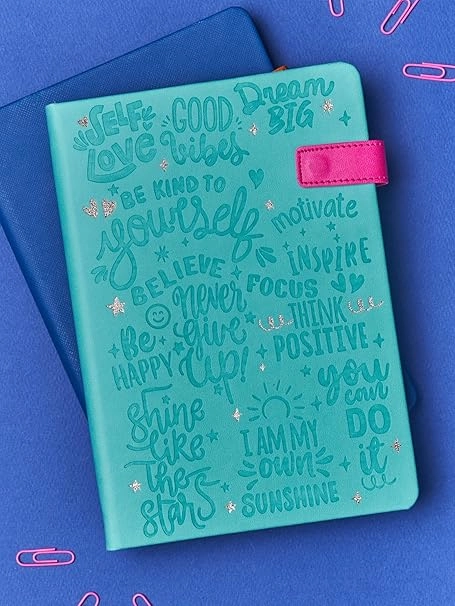 SELF
LOVE
GOOD
vibes
Dream
BIG
BE KIND TO
yourself
motivate
INSPIRE
BELIEVE
FOCUS
never
give
up!
THINK
POSITIVE
Be
HAPPY
you
can
DO
it
Shine
like
the
stars
I AM MY
own
SUNSHINE